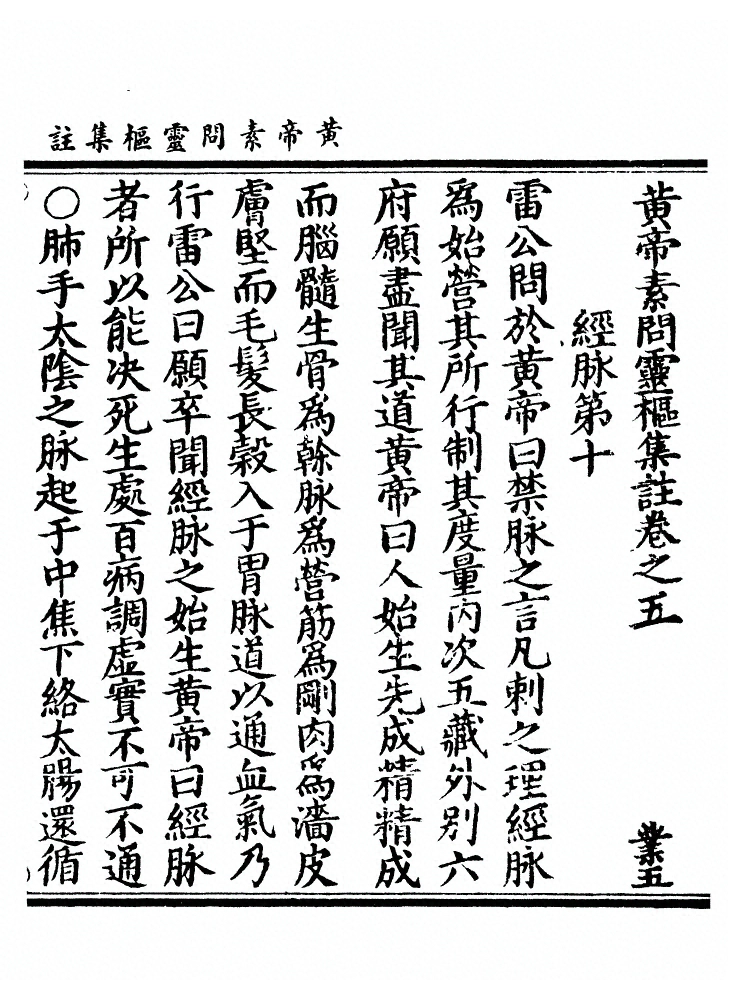 黃帝素問靈樞集註
黃帝素問靈樞集註卷之五 業五
經脉第十
雷公問於黃帝曰禁脉之言凡刺之理經脉
爲始營其所行制其度量內次五藏外別六
府願盡聞其道黃帝曰人始生先成精精成
而腦髓生骨爲幹脉爲營筋爲剛肉爲墻皮
膚堅而毛髮長穀入于胃脉道以通血氣乃
行雷公曰願卒聞經脉之始生黃帝曰經脉
者所以能决死生處百病調虛實不可不通
〇肺手太陰之脉起于中焦下絡大腸還循